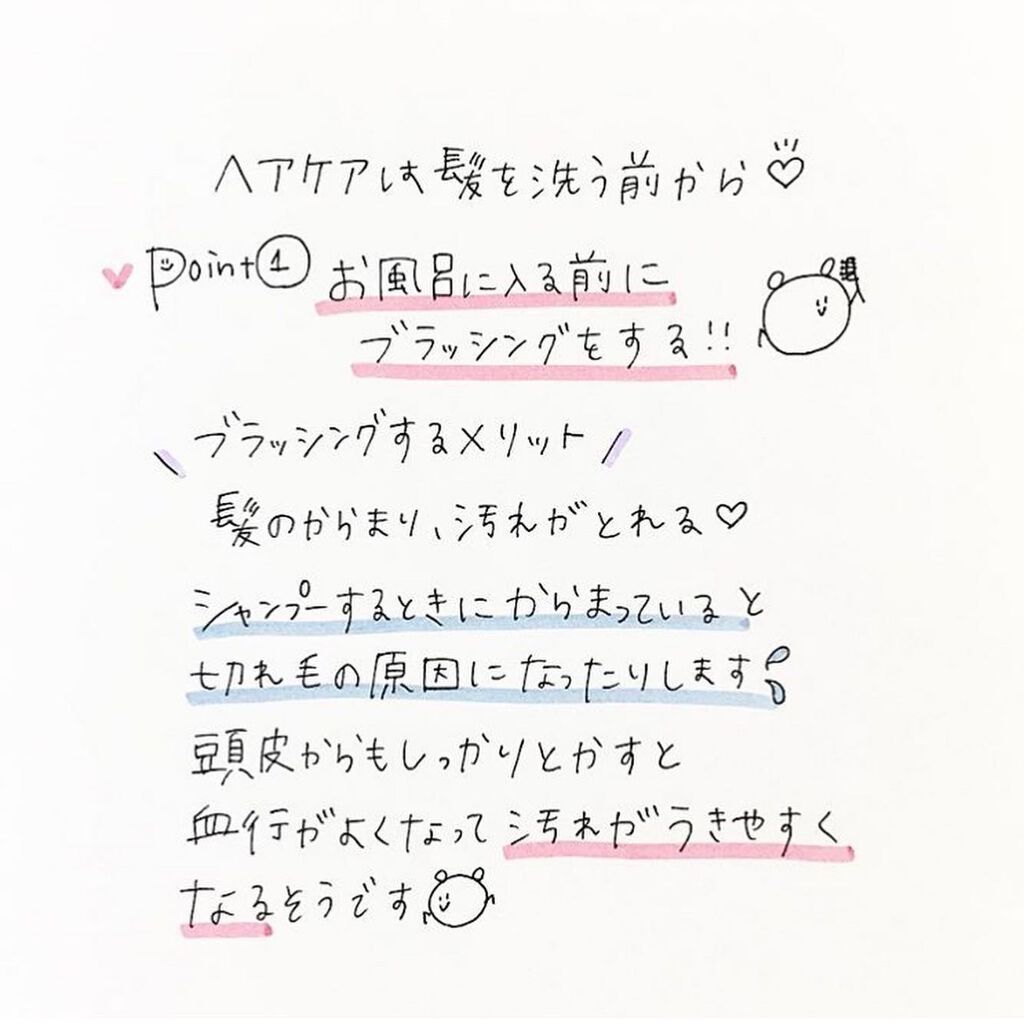 ヘアケアは髪を洗う前から♡
Point① お風呂に入る前に
ブラッシングをする!!
ブラッシングするメリット
髪のからまり、汚れがとれる♡
シャンプーするときにからまっていると
切れ毛の原因になったりします
頭皮からもしっかりとかすと
血行がよくなって汚れがうきやすく
なるそうです